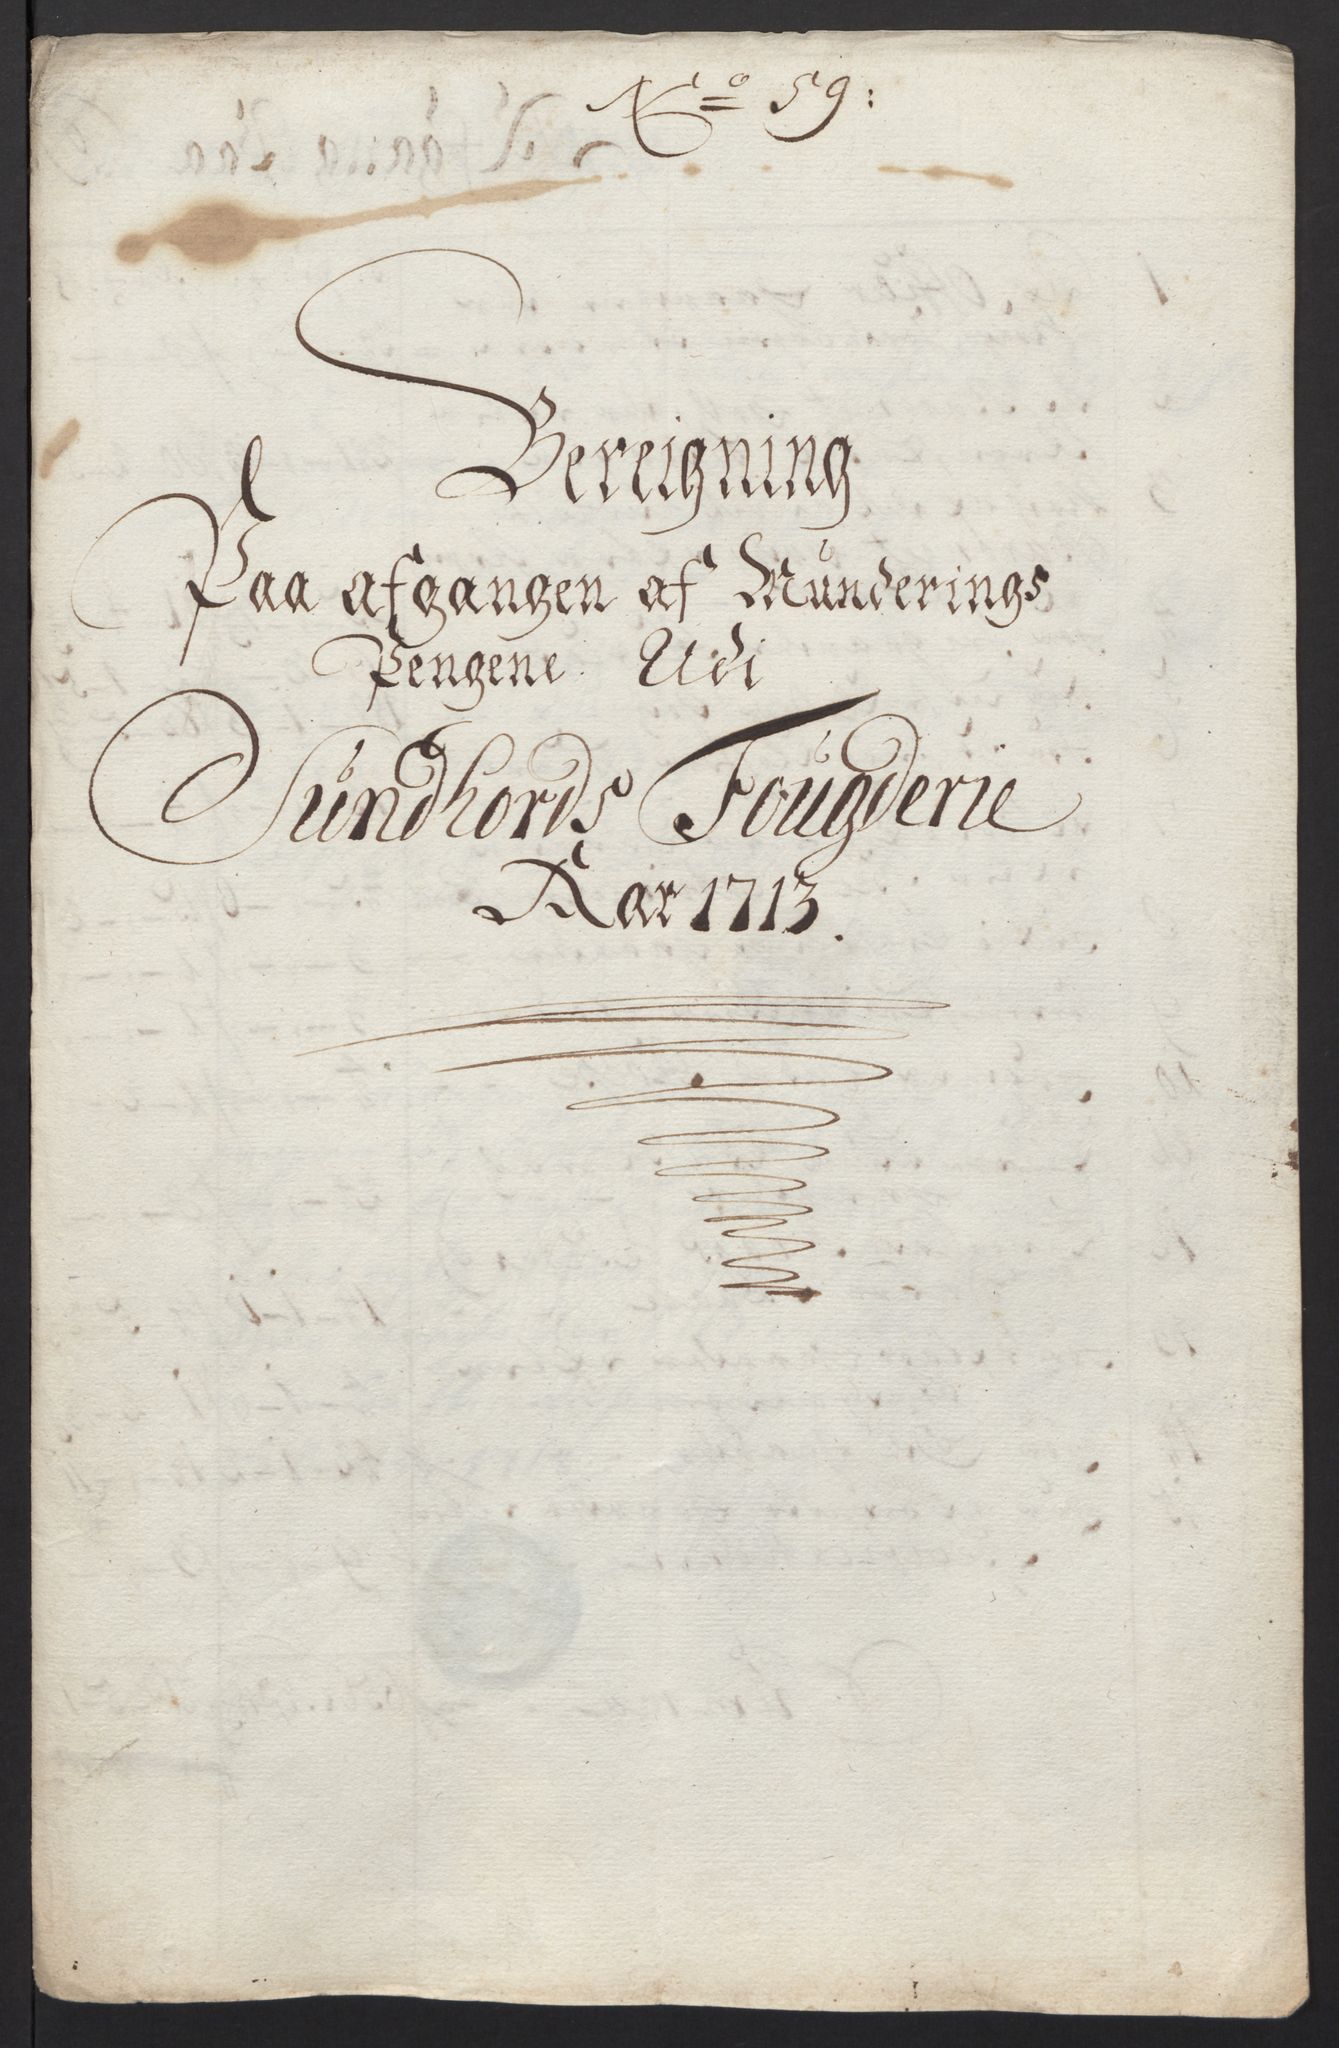 No 59:
Bereigning
Paa afgangen af Munderings
Pengene Udi
Sundhords Fougderie
Aar 1713.